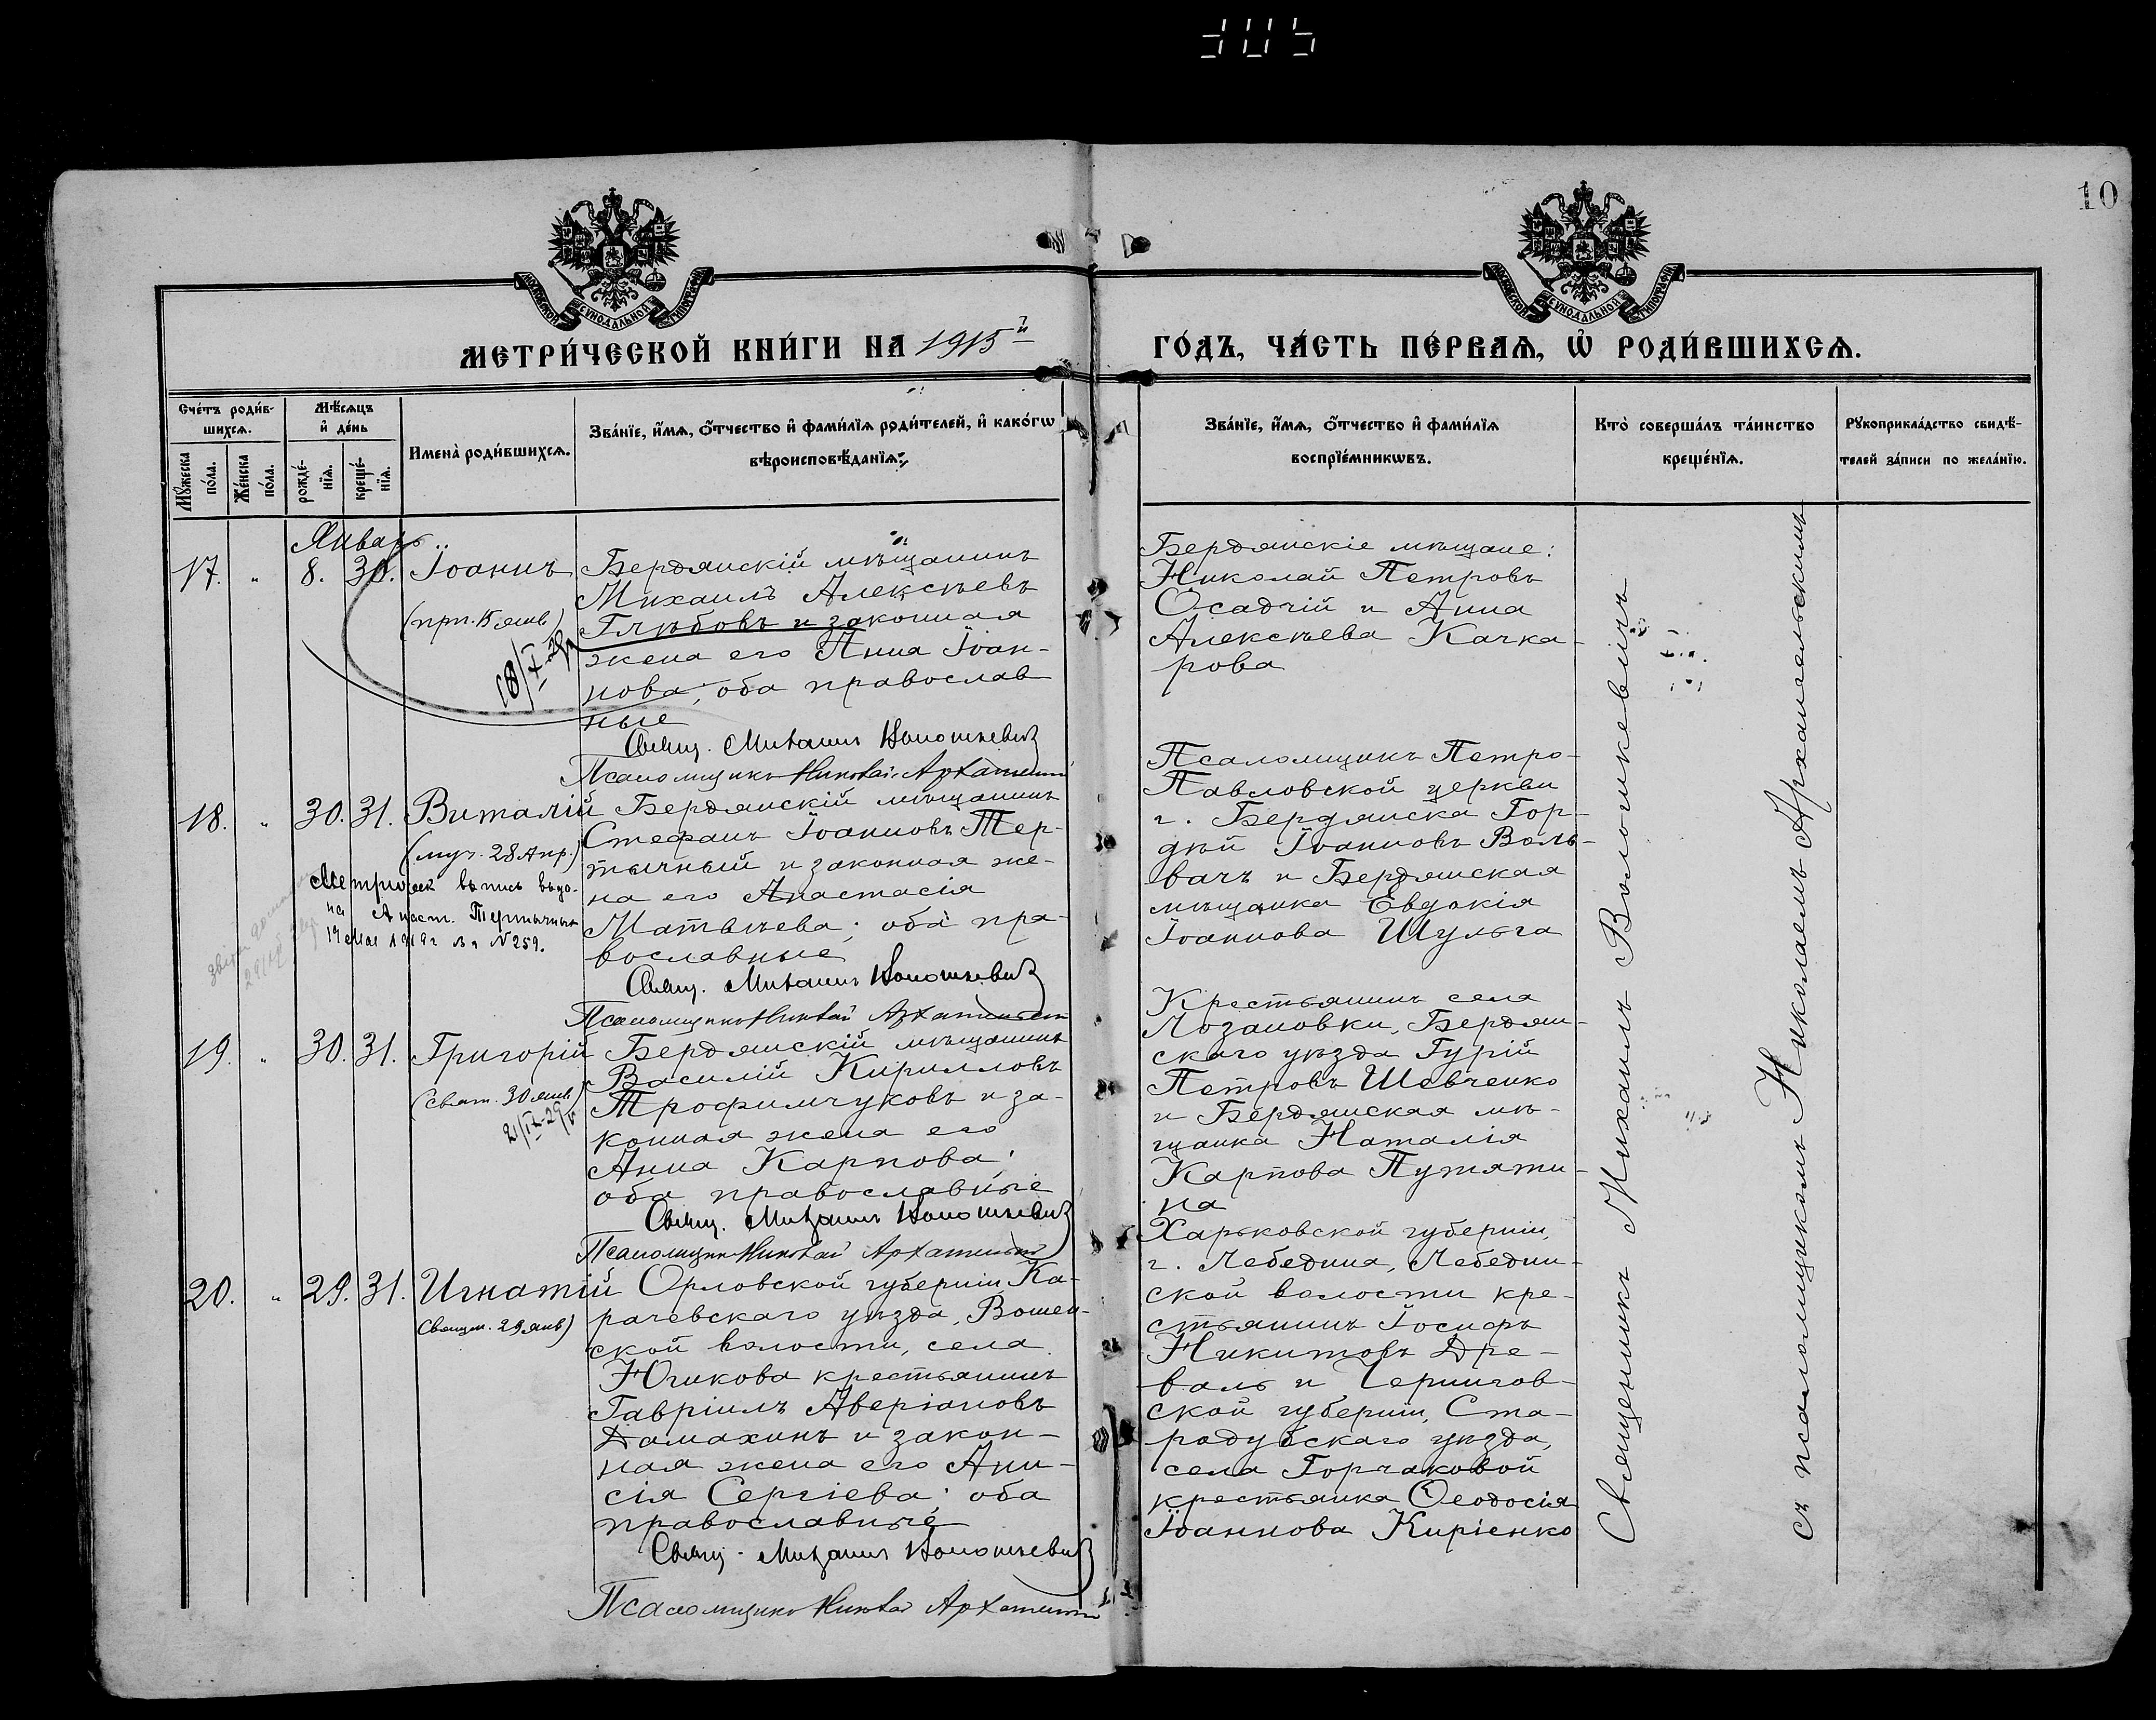 305
10
МОСКОВСКОЙ СѴНОДАЛЬНОЙ ТИПОГРАФІИ
МОСКОВСКОЙ СѴНОДАЛЬНОЙ ТИПОГРАФІИ
МЕТРИ́ЧЕСКОЙ КНИ́ГИ НА 1915й
ГО́ДЪ, ЧА́СТЬ ПЕ́РВАѦ, Ѽ РОДИ́ВШИХСѦ.
Сче́тъ роди́в-
шихсѧ.
Мꙋ́жеска по́ла.
Же́нска по́ла.
Мѣ́сѧцъ
и҆ де́нь
рожде́-
нїѧ.
креще́-
нїѧ.
Имена̀ роди́вшихсѧ.
Зва́нїе, и҆́мѧ, ѻ҆́тчество и҆ фами́лїѧ роди́телей, и҆ како́гѡ
вѣроисповѣ́данїѧ.
Зва́нїе, и҆́мѧ, ѻ҆́тчество и҆ фами́лїѧ
воспрїе́мникѡвъ.
Кто̀ соверша́лъ та́инство
креще́нїѧ.
Рꙋкоприкла́дство свидѣ́-
телей за́писи по жела́нїю.
Январь
17. " 8. 30. Іоаннъ
(прп. 15 янв)
Бердянскій мѣщанинъ
Михаилъ Алексѣевъ
Глѣбовъ и законная
жена его Анна Іоан-
нова; оба православ
ные
Свящ. Михаилъ Волошкевичъ
Псаломщикъ Николай Архангельскій
Бердянскіе мѣщане:
Николай Петровъ
Осадчій и Анна
Алексѣева Качка-
рова
18. " 30. 31. Виталій
(муч. 28 Апр.)
на Анаст. Тертычная
19 мая 1919 г за № 259.
Бердянскій мѣщанинъ
Стефанъ Іоанновъ Тер-
тычный и законная же-
на его Анастасія
Матвѣева; оба пра-
вославные
Свящ. Михаилъ Волошкевичъ
Псаломщикъ Николай Архангельскій
Псаломщикъ Петро-
Павловской церкви
г. Бердянска Гор-
дѣй Іоанновъ Воль-
вачъ и Бердянская
мѣщанка Евдокія
Іоаннова Шульга
19. " 30. 31. Григорій
(свят. 30 янв)
21/IX-29
Бердянскій мѣщанинъ
Василій Кирилловъ
Трофимчуковъ и за-
конная жена его
Анна Карпова;
оба православные
Свящ. Михаилъ Волошкевичъ
Псаломщикъ Николай Архангельскій
Крестьянинъ села
Лозановки, Бердян-
скаго уѣзда Гурій
Петровъ Шевченко
и Бердянская мѣ-
щанка Наталія
Карпова Путяти-
на
20. " 29. 31. Игнатій
Свящм. 29 янв)
Орловской губерніи, Ка-
рачевскаго уѣзда, Вошен-
ской волости, села
Югикова крестьянинъ
Гавріилъ Аверіановъ
Дамахинъ и закон-
ная жена его Ани-
сія Сергіева; оба
православные
Свящ. Михаилъ Волошкевичъ
Псаломщикъ Николай Архангельскій
Харьковской губерніи,
г. Лебедина, Лебедин-
ской волости кре-
стьянинъ Іосифъ
Никитовъ Дре-
валь и Чернигов-
ской губерніи, Ста-
родубскаго уѣзда,
села Горчаковой
крестьянка Ѳеодосія
Іоаннова Киріенко
Священникъ Михаилъ Волошкевичъ
съ псаломщикомъ Николаемъ Архангельскимъ